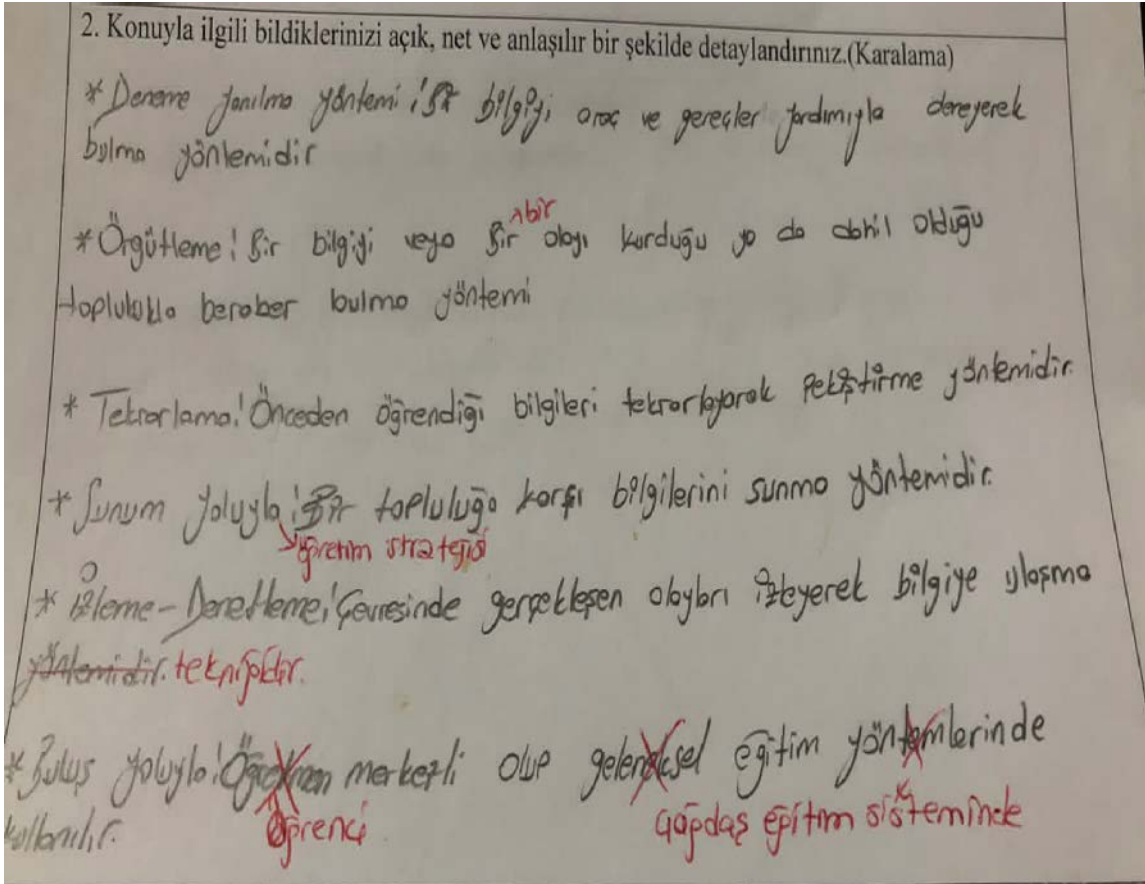 2. Konuyla ilgili bildiklerinizi açık, net ve anlaşılır bir şekilde detaylandırınız.(Karalama)
* Deneme yanılma yöntemi: Bir bilgiyi araç ve gereçler yardımıyla deneyerek
bulma yöntemidir
^bir
* Örgütleme: Bir bilgiyi veya Bir olayı kurduğu ya da dahil olduğu
toplulukla beraber bulma yöntemi
* Tekrarlama: Önceden öğrendiği bilgileri tekrarlayarak Pekiştirme yöntemidir.
* Sunum Yoluyla: Bir topluluğa karşı bilgilerini sunma yöntemidir.
öğretim stratejisi
* İzleme - Denetleme: Çevresinde gerçekleşen olayları izleyerek bilgiye ulaşma
yöntemidir. tekniğidir.
* Buluş yoluyla: Öğretmen merkezli olup geleneksel eğitim yöntemlerinde
Öğrenci Çağdaş eğitim sisteminde
kullanılır.